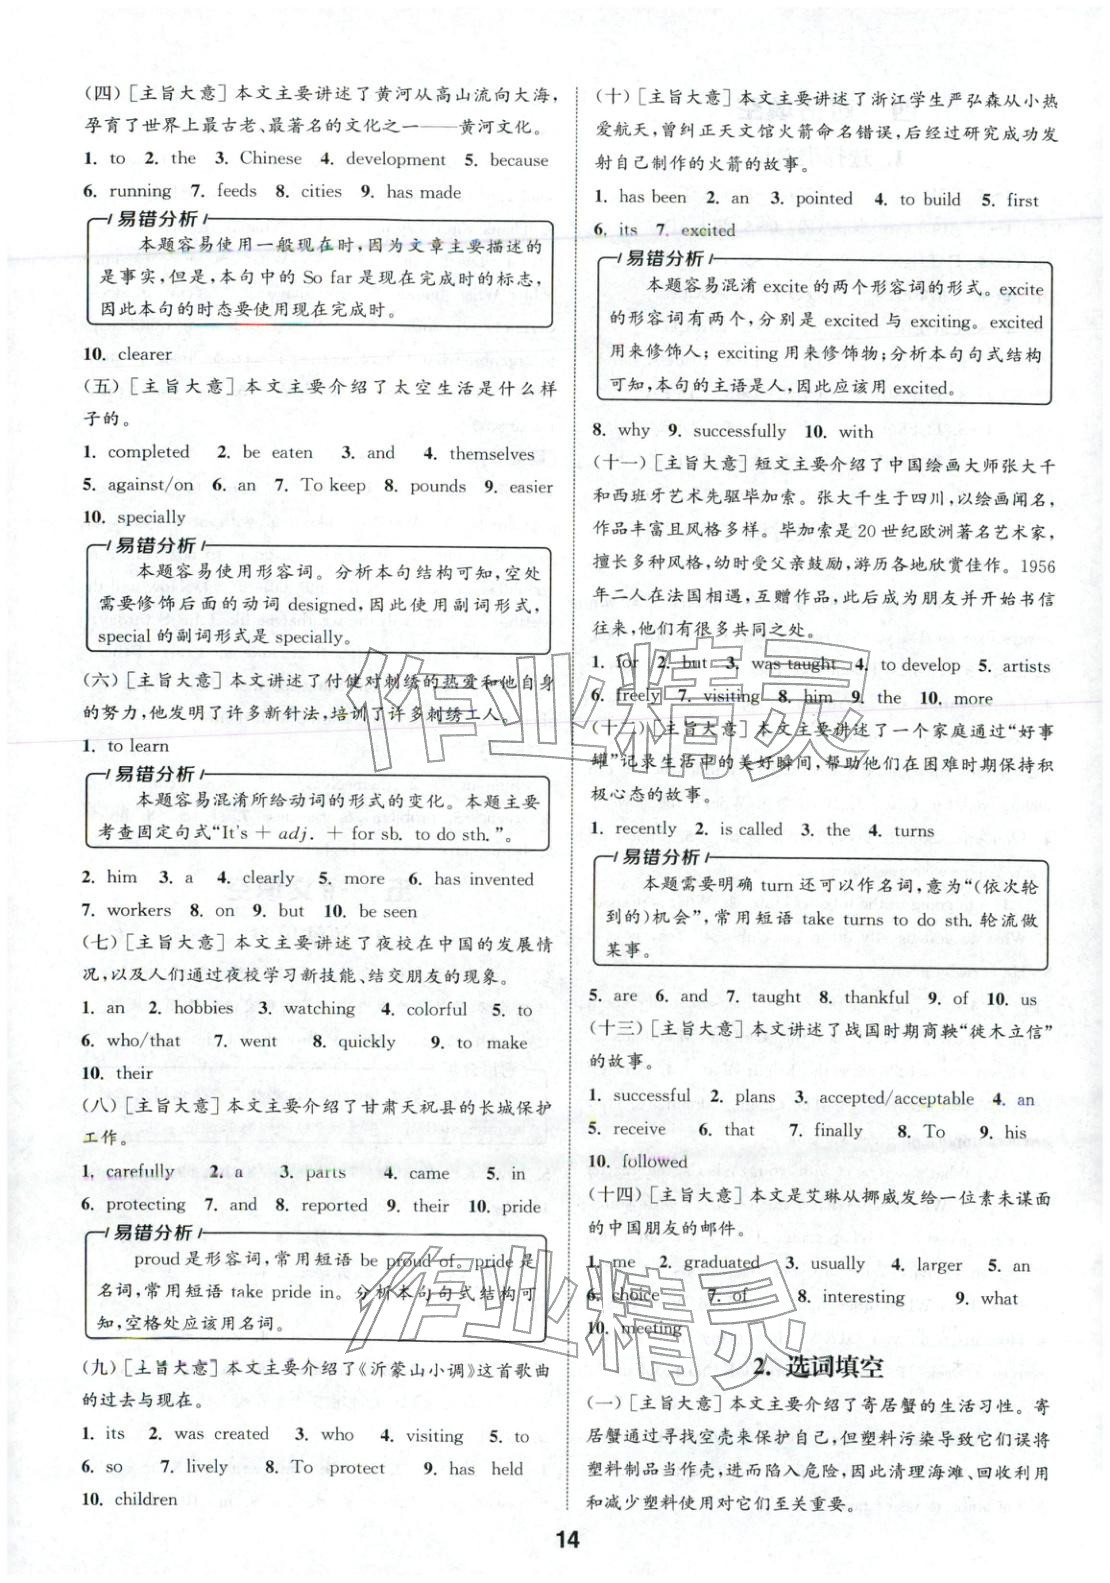 (四)[主旨大意]本文主要讲述了黄河从高山流向大海,
孕育了世界上最古老、最著名的文化之一——黄河文化。
1. to 2. the 3. Chinese 4. development 5. because
6. running 7. feeds 8. cities 9. has made
易错分析
本题容易使用一般现在时,因为文章主要描述的
是事实,但是,本句中的 So far 是现在完成时的标志,
因此本句的时态要使用现在完成时。
10. clearer
(五)[主旨大意]本文主要介绍了太空生活是什么样
子的。
1. completed 2. be eaten 3. and 4. themselves
5. against/on 6. an 7. To keep 8. pounds 9. easier
10. specially
易错分析
本题容易使用形容词。分析本句结构可知,空处
需要修饰后面的动词 designed,因此使用副词形式,
special 的副词形式是 specially。
(六)[主旨大意]本文讲述了付健对刺绣的热爱和他自身
的努力,他发明了许多新针法,培训了许多刺绣工人。
1. to learn
易错分析
本题容易混淆所给动词的形式的变化。本题主要
考查固定句式“It's + adj. + for sb. to do sth.”。
2. him 3. a 4. clearly 5. more 6. has invented
7. workers 8. on 9. but 10. be seen
(七)[主旨大意]本文主要讲述了夜校在中国的发展情
况,以及人们通过夜校学习新技能、结交朋友的现象。
1. an 2. hobbies 3. watching 4. colorful 5. to
6. who/that 7. went 8. quickly 9. to make
10. their
(八)[主旨大意]本文主要介绍了甘肃天祝县的长城保护
工作。
1. carefully 2. a 3. parts 4. came 5. in
6. protecting 7. and 8. reported 9. their 10. pride
易错分析
proud 是形容词,常用短语 be proud of。pride 是
名词,常用短语 take pride in。分析本句句式结构可
知,空格处应该用名词。
(九)[主旨大意]本文主要介绍了《沂蒙山小调》这首歌曲
的过去与现在。
1. its 2. was created 3. who 4. visiting 5. to
6. so 7. lively 8. To protect 9. has held
10. children
(十)[主旨大意]本文主要讲述了浙江学生严弘森从小热
爱航天,曾纠正天文馆火箭命名错误,后经过研究成功发
射自己制作的火箭的故事。
1. has been 2. an 3. pointed 4. to build 5. first
6. its 7. excited
易错分析
本题容易混淆 excite 的两个形容词的形式。excite
的形容词有两个,分别是 excited 与 exciting。excited
用来修饰人;exciting 用来修饰物;分析本句句式结构
可知,本句的主语是人,因此应该用 excited。
8. why 9. successfully 10. with
(十一)[主旨大意]短文主要介绍了中国绘画大师张大千
和西班牙艺术先驱毕加索。张大千生于四川,以绘画闻名,
作品丰富且风格多样。毕加索是 20 世纪欧洲著名艺术家,
擅长多种风格,幼时受父亲鼓励,游历各地欣赏佳作。1956
年二人在法国相遇,互赠作品,此后成为朋友并开始书信
往来,他们有很多共同之处。
1. for 2. but 3. was taught 4. to develop 5. artists
6. freely 7. visiting 8. him 9. the 10. more
(十二)[主旨大意]本文主要讲述了一个家庭通过“好事
罐”记录生活中的美好瞬间,帮助他们在困难时期保持积
极心态的故事。
1. recently 2. is called 3. the 4. turns
易错分析
本题需要明确 turn 还可以作名词,意为“(依次轮
到的)机会”,常用短语 take turns to do sth. 轮流做
某事。
5. are 6. and 7. taught 8. thankful 9. of 10. us
(十三)[主旨大意]本文讲述了战国时期商鞅“徙木立信”
的故事。
1. successful 2. plans 3. accepted/acceptable 4. an
5. receive 6. that 7. finally 8. To 9. his
10. followed
(十四)[主旨大意]本文是艾琳从挪威发给一位素未谋面
的中国朋友的邮件。
1. me 2. graduated 3. usually 4. larger 5. an
6. choice 7. of 8. interesting 9. what
10. meeting
2. 选词填空
(一)[主旨大意]本文主要介绍了寄居蟹的生活习性。寄
居蟹通过寻找空壳来保护自己,但塑料污染导致它们误将
塑料制品当作壳,进而陷入危险,因此清理海滩、回收利用
和减少塑料使用对它们至关重要。
14
作业精灵
作业精灵